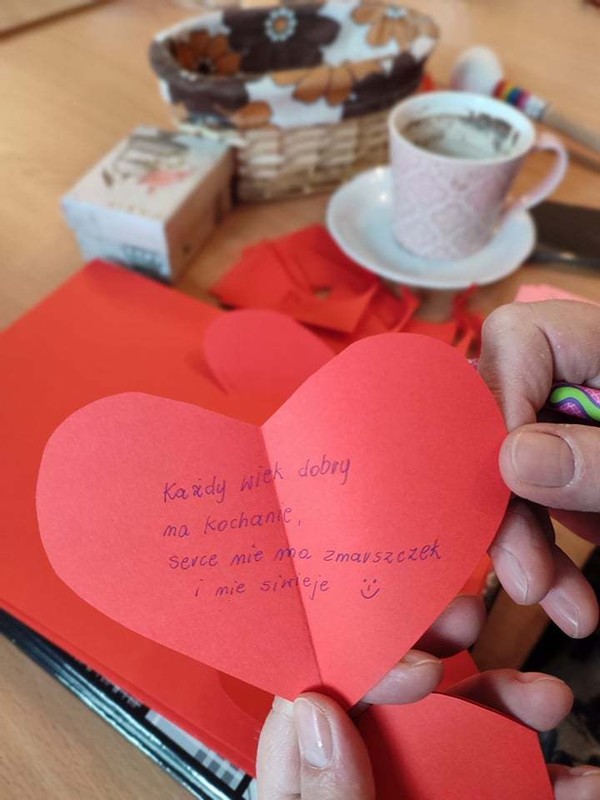 Każdy wiek dobry
na kochanie,
serce nie ma zmarszczek
i nie siwieje :)